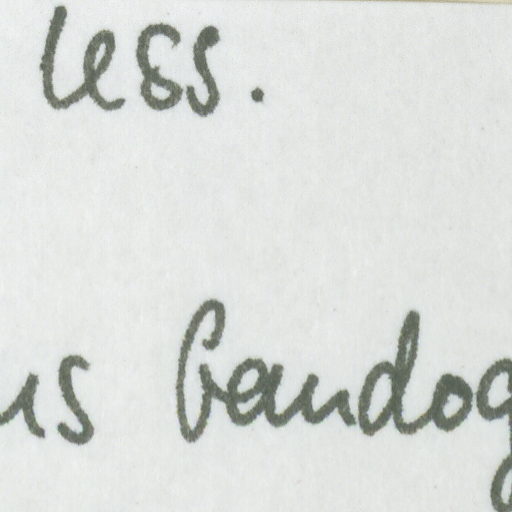 less.
us bandog